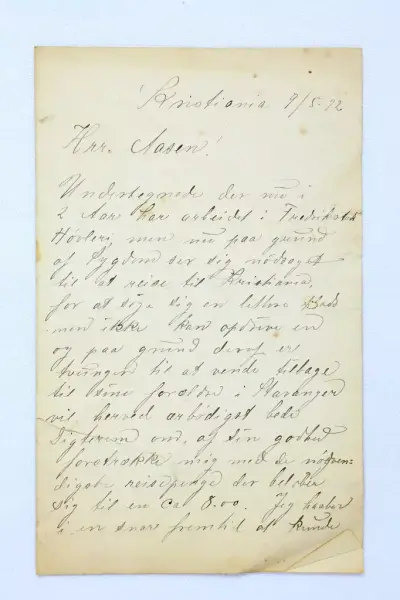 Kristiania 9/5.92
Hrr. Aasen!
Undertegnede der nu i
2 Aar har arbeidet i Fredrikstad
Høvleri, men nu paa grund
af Sygdom ser sig nødsaget
til at reise til Kristiania,
for at søge sig en lettere
men ikke kan opdrive en
og paa grund deraf er
tvungen til at vende tilbage
til sine forældre i Stavanger
vil herved ærbødigst bede
Digteren om, af sin godhed
forstrække mig med de nødven-
digste reisepenge der beløber
sig til en ca 8.00. Jeg haaber
i en snar fremtid at kunde